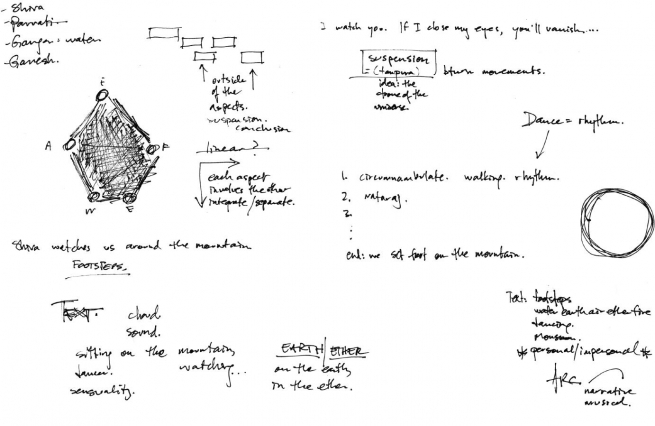 - Shiva
- Parvati
- Ganga = water
- Ganesh.
E
A
F
W
E
outside
of the
aspects.
suspension.
conclusion
linear?
each aspect
involves the other
integrate/separate.
I watch you. If I close my eyes, you'll vanish...
suspension
= (tanpura)
btwn movements.
idea: the
drone of the
universe
Dance = rhythm.
1. circumnambulate. walking. rhythm.
2. nataraj.
3.
end: we set foot on the mountain.
Shiva watches us around the mountain
FOOTSTEPS.
Text.
chord
sound.
sitting on the mountain,
watching...
dancer.
sensuality.
EARTH/ETHER
on the earth,
in the ether.
Text: footsteps
water earth air ether fire
dancing.
monsoon.
* personal/impersonal *
ARC
narrative
musical.